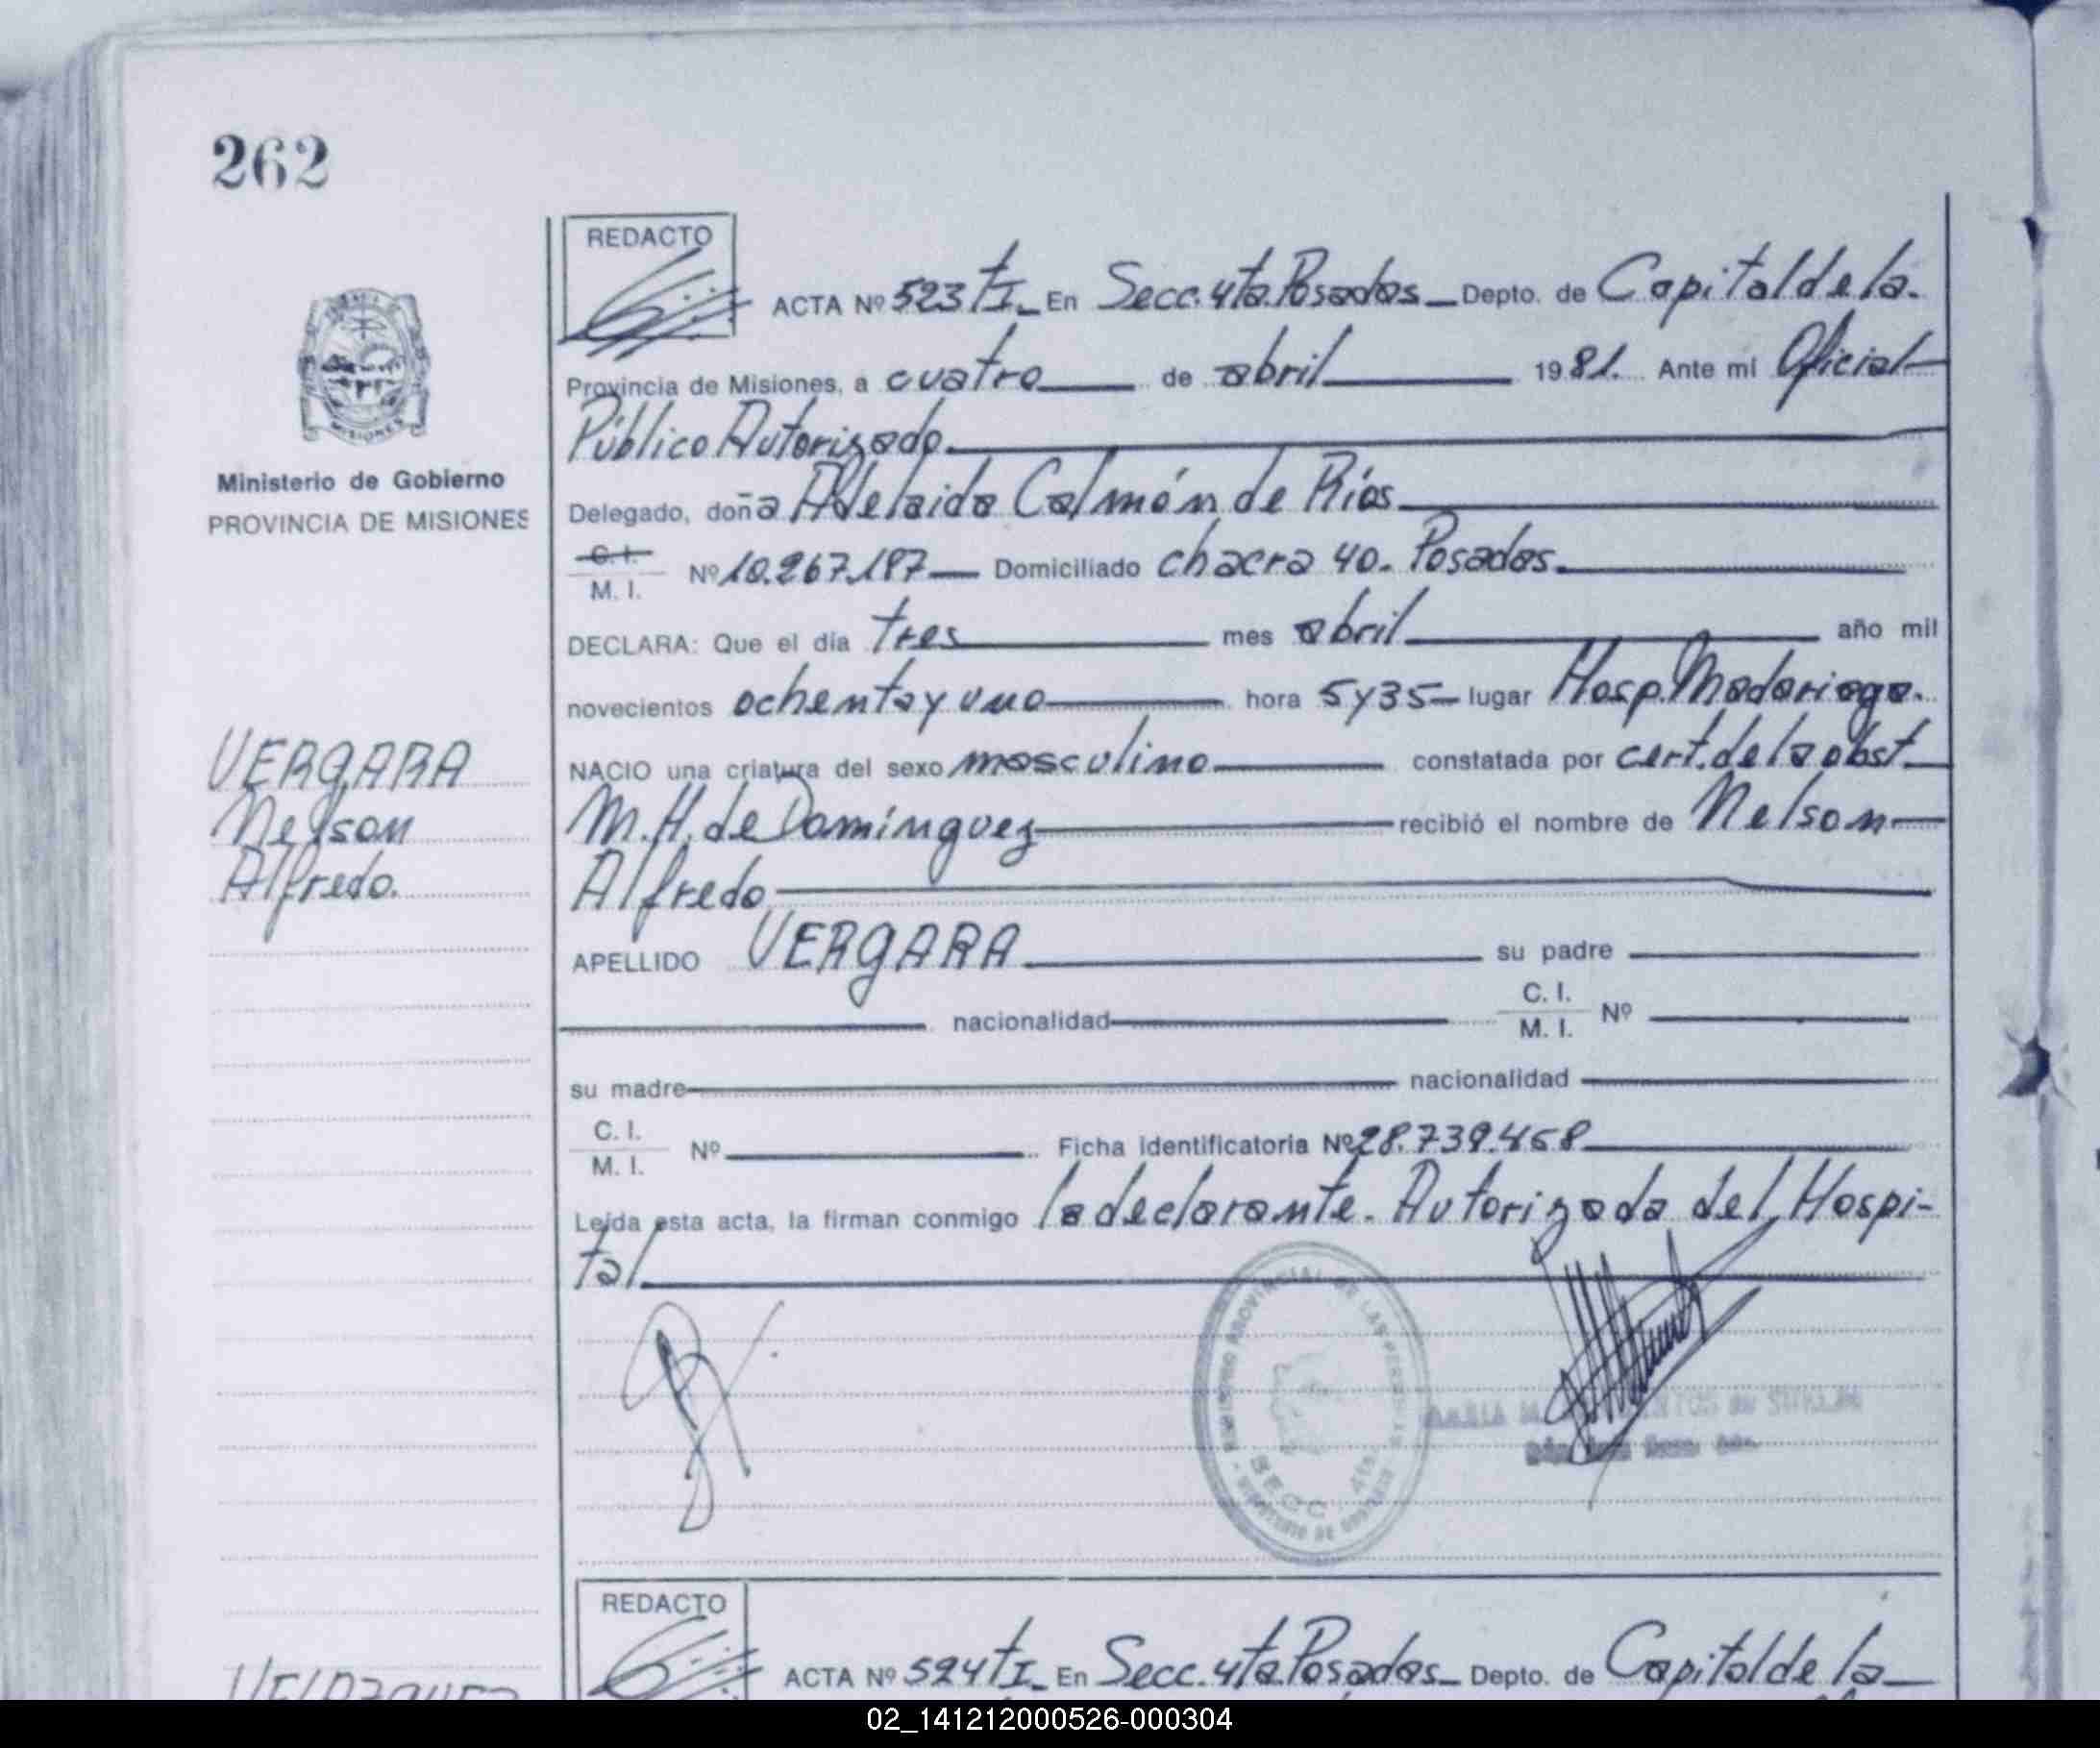 262
REDACTO
ACTA Nº 523 tI_ En Secc. 4ta. Posadas_ Depto. de Capital de la.
Provincia de Misiones, a cuatro de abril 1981. Ante mi Oficial
Público Autorizado.
Ministerio de Gobierno
PROVINCIA DE MISIONES
Delegado, doña Adelaida Calmón de Ríos.
C. I.
M. I. Nº 10.267.187 Domiciliado chacra 40. Posadas.
DECLARA: Que el día tres mes abril año mil
novecientos ochenta y uno hora 5 y 35 lugar Hosp. Madariaga.
NACIO una criatura del sexo masculino constatada por cert. de la obst.
M. H. de Domínguez recibió el nombre de Nelson
Alfredo
VERGARA
Nelson
Alfredo.
APELLIDO VERGARA su padre
nacionalidad C. I. M. I. Nº
su madre nacionalidad
C. I. M. I. Nº Ficha identificatoria Nº 28.739.468
Leída esta acta, la firman conmigo la declarante. Autorizada del Hospi-
tal
MISIONES
SECC. 4ta.
REDACTO
ACTA Nº 524 tI_ En Secc. 4ta. Posadas_ Depto. de Capital de la
02_141212000526-000304